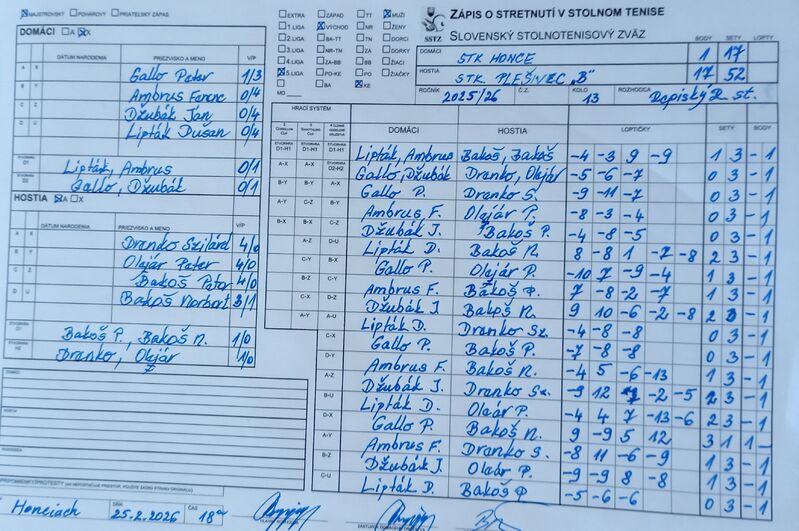 MAJSTROVSKÝ POHÁROVÝ PRIATEĽSKÝ ZÁPAS
DOMÁCI A X
DÁTUM NARODENIA PRIEZVISKO A MENO V/P
A X Gallo Peter 1/3
B Y Ambrus Ferenc 0/4
C Z Džubák Ján 0/4
D U Lipták Dušan 0/4
ŠTVORHRA D1 Lipták, Ambrus 0/1
ŠTVORHRA D2 Gallo, Džubák 0/1
HOSTIA A X
DÁTUM NARODENIA PRIEZVISKO A MENO V/P
A X Dranko Szilárd 4/0
B Y Olajár Peter 4/0
C Z Bakoš Peter 4/0
D U Bakoš Norbert 3/1
ŠTVORHRA H1 Bakoš P., Bakoš N. 1/0
ŠTVORHRA H2 Dranko, Olajár 1/0
DOMÁCI
HOSTIA
ROZHODCA
PRIPOMIENKY/PROTESTY
Honciach DŇA 25.2.2026 ČAS 18
EXTRA ZÁPAD TT MUŽI
1.LIGA VÝCHOD NR ŽENY
2.LIGA BA-TT TN DORCI
3.LIGA NR-TN ZA DORKY
4.LIGA ZA-BB BB ŽIACI
5.LIGA PO-KE PO ŽIAČKY
MO BA KE
SSTZ
ZÁPIS O STRETNUTÍ V STOLNOM TENISE
SLOVENSKÝ STOLNOTENISOVÝ ZVÄZ
BODY SETY LOPTY
DOMÁCI STK HONCE 1 17
HOSTIA STK PLEŠIVEC „B" 17 52
ROČNÍK 2025/26 Č.Z. KOLO 13 ROZHODCA st.
HRACÍ SYSTÉM
DOMÁCI HOSTIA LOPTIČKY SETY BODY
Lipták, Ambrus Bakoš, Bakoš -4 -3 9 -9 1 3 -1
Gallo, Džubák Dranko, Olajár -5 -6 -7 0 3 -1
Gallo P. Dranko S. -9 -11 -7 0 3 -1
Ambrus F. Olajár P. -8 -3 -4 0 3 -1
Džubák J. Bakoš P. -4 -8 -5 0 3 -1
Lipták D. Bakoš N. 8 -8 1 -7 -8 2 3 -1
Gallo P. Olajár P. -10 7 -9 -4 1 3 -1
Ambrus F. Bakoš P. 7 -8 -2 -7 1 3 -1
Džubák J. Bakoš N. 9 10 -6 -2 -8 2 3 -1
Lipták D. Dranko Sz. -4 -8 -8 0 3 -1
Gallo P. Bakoš P. -7 -8 -8 0 3 -1
Ambrus F. Bakoš N. -4 5 -6 -13 1 3 -1
Džubák J. Dranko Sz. -9 12 -2 -5 2 3 -1
Lipták D. Olaár P. -4 4 7 -13 -6 2 3 -1
Gallo P. Bakoš N. 9 -9 5 12 3 1 1 -
Ambrus F. Dranko S. -8 11 -6 -9 1 3 -1
Džubák J. Olaár P. -9 -9 8 -8 1 3 -1
Lipták D. Bakoš P. -5 -6 -6 0 3 -1